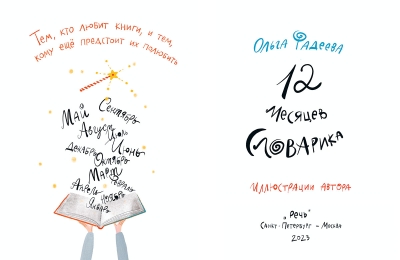 Тем, кто любит книги, и тем,
кому ещё предстоит их полюбить
Май Сентябрь
Август Июль
Декабрь Июнь
Октябрь
Март
Апрель Февраль
Ноябрь
Январь
Ольга Фадеева
12
месяцев
Словарика
Иллюстрации автора
"Речь"
Санкт-Петербург – Москва
2023